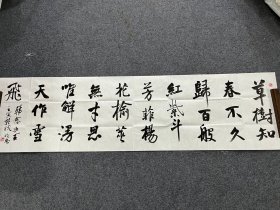 草樹知
春不久
歸百般
紅紫斗
芳菲楊
花榆莢
無才思
唯解漫
天作雪
飛